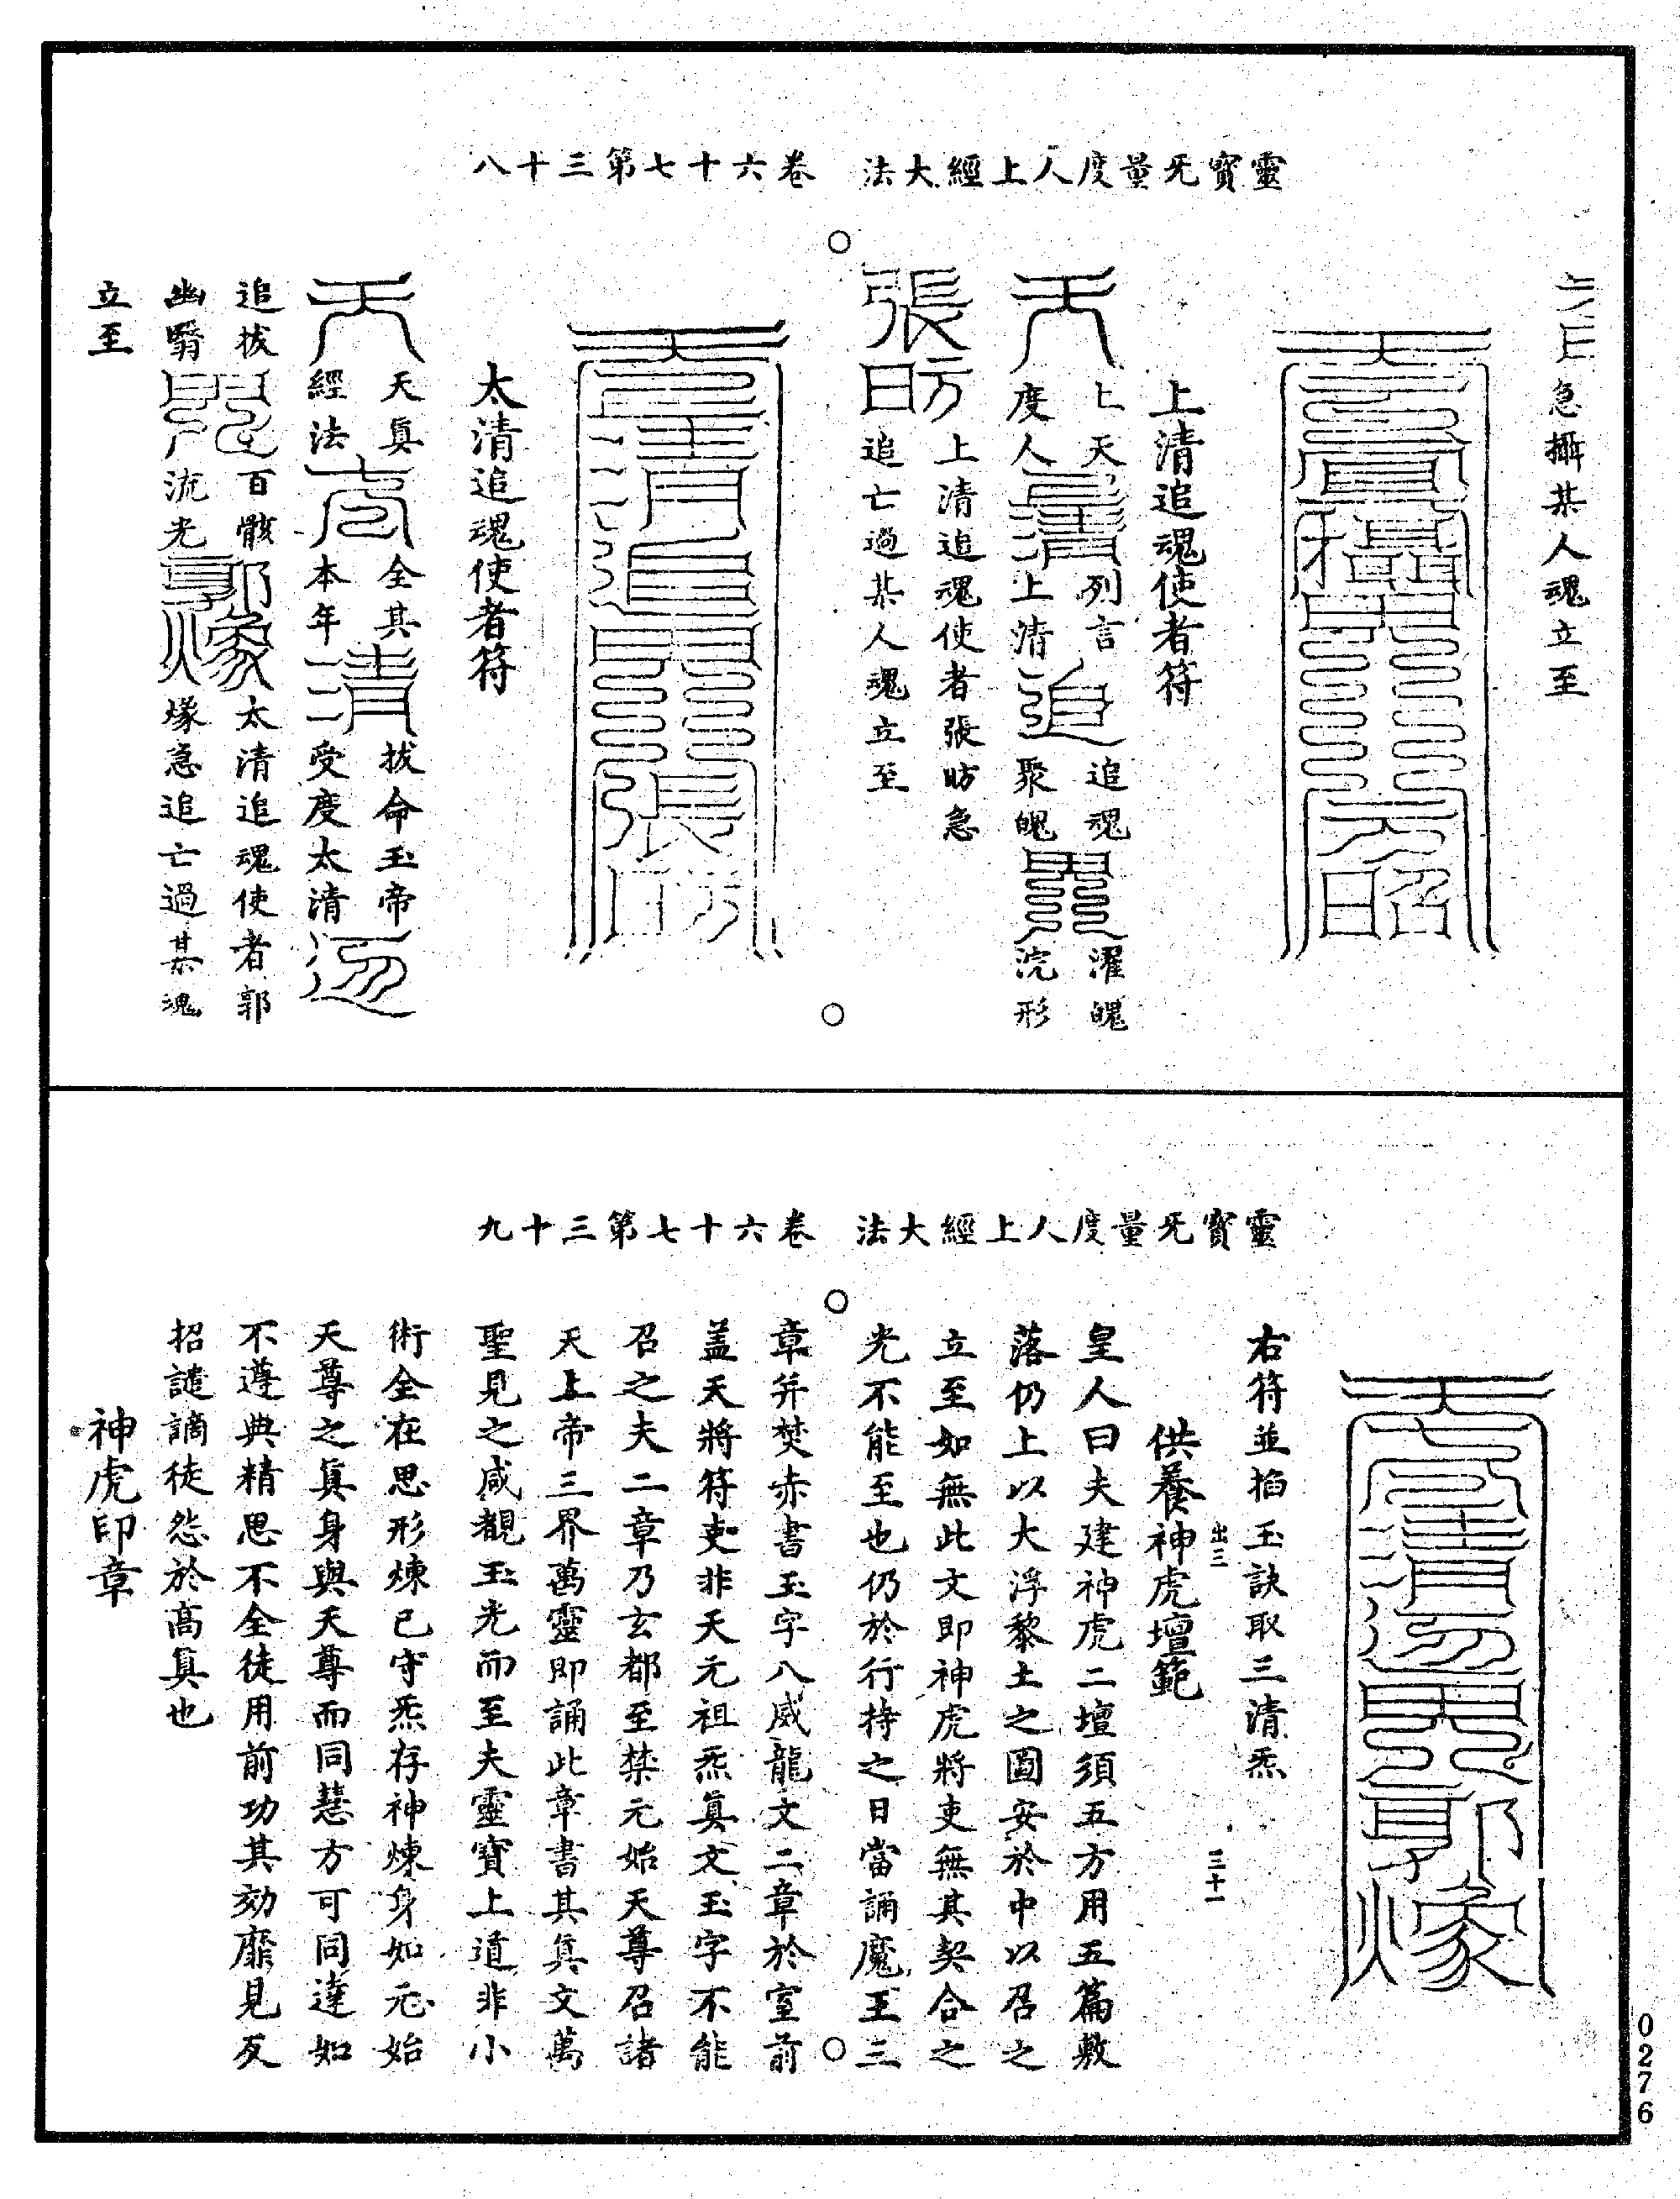 靈寶旡量度人上經大法　卷六十七第三十八
急攝某人魂立至
上清追魂使者符
上天　列言　追魂　濯魄
度人　上清　聚魄　浣形
上清追魂使者張昉急
追亡過某人魂立至
太清追魂使者符
天真　全其　拔命玉帝
經法　本年　受度太清
追拔　百骸　太清追魂使者郭
幽翳　流光　㷟急追亡過某魂
立至
靈寶旡量度人上經大法　卷六十七第三十九
右符並掐玉訣取三清炁
供養神虎壇範
出三　三十一
皇人曰夫建神虎二壇須五方用五篇敷
落仍上以大浮黎土之圖安於中以召之
立至如無此文即神虎將吏無其契合之
光不能至也仍於行持之日當誦魔王三
章并焚赤書玉字八威龍文二章於室前
盖天將符吏非天元祖炁真文玉字不能
召之夫二章乃玄都至禁元始天尊召諸
天上帝三界萬靈即誦此章書其真文萬
聖見之咸覩玉光而至夫靈寶上道非小
術全在思形煉己守炁存神煉身如元始
天尊之真身與天尊而同慧方可同達如
不遵典精思不全徒用前功其効靡見反
招譴謫徒怨於高真也
神虎印章
0276